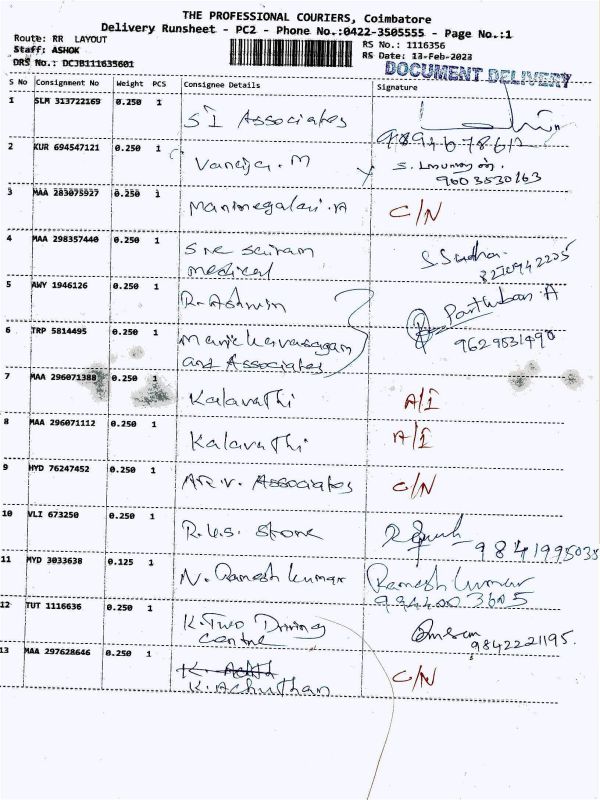 THE PROFESSIONAL COURIERS, Coimbatore
Delivery Runsheet - PC2 - Phone No.:0422-3505555 - Page No.:1
Route: RR LAYOUT
RS No.: 1116356
Staff: ASHOK
RS Date: 13-Feb-2023
DRS No.: DCJB111635601
DOCUMENT DELIVERY
S No Consignment No Weight PCS Consignee Details Signature
1 SLM 313722169 0.250 1 SI Associates
2 KUR 694547121 0.250 1 Vanaja. M
9603530163
3 MAA 283075927 0.250 1 Manimegalai. A C/N
4 MAA 298357440 0.250 1 Sre Sairam
medical
5 AWY 1946126 0.250 1 R. Ashwin Parthiban. A
6 TRP 5814495 0.250 1 Manickavasagam
and Associates 9629831490
7 MAA 296071388 0.250 1 Kalavathi A/I
8 MAA 296071112 0.250 1 Kalavathi A/I
9 HYD 76247452 0.250 1 Associates C/N
10 VLI 673250 0.250 1 R.V.S. Stone
9841995035
11 MYD 3033638 0.125 1 N. Ramesh kumar Ramesh kumar
12 TUT 1116636 0.250 1 K. Two Driving
centre 9842221195.
13 MAA 297628646 0.250 1 C/N
K. Achuthan